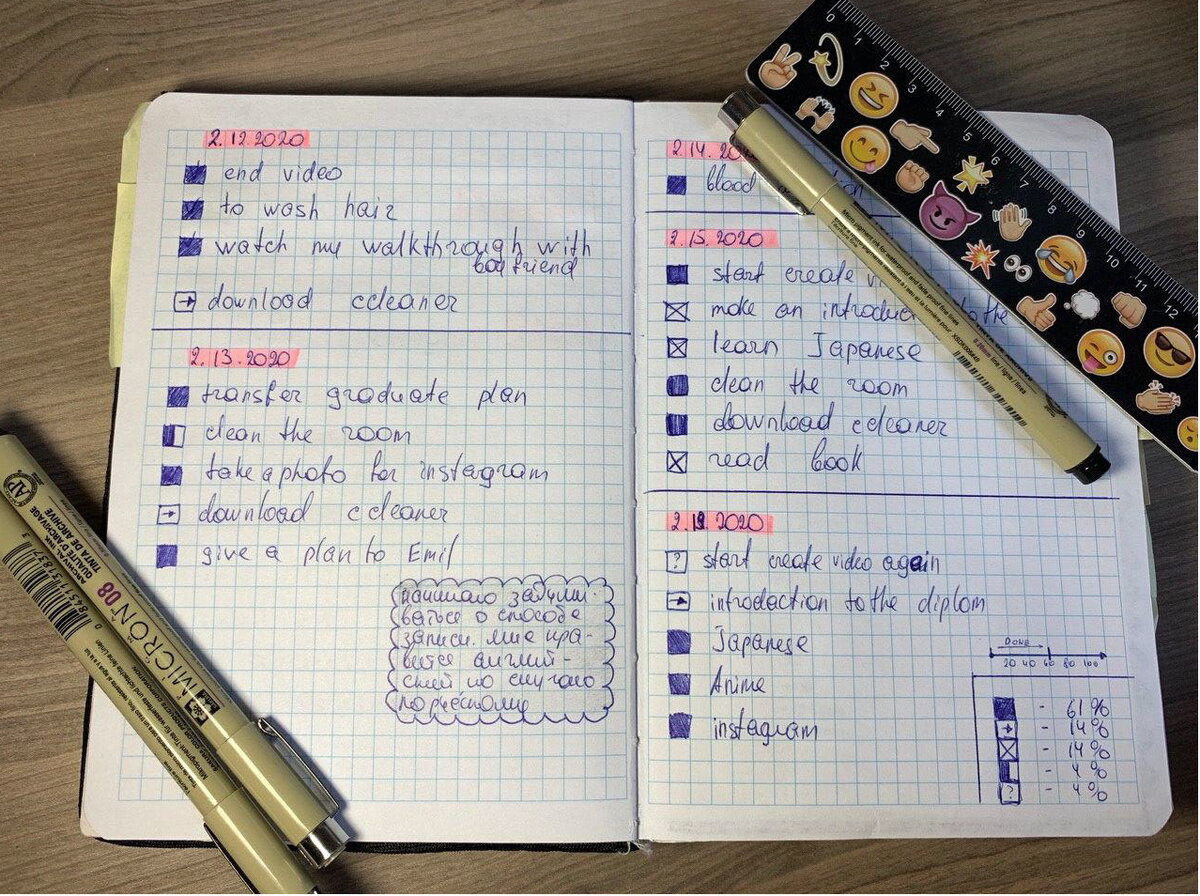 2.12.2020
end video
to wash hair
watch my walkthrough with
boyfriend
download ccleaner
2.13.2020
transfer graduate plan
clean the room
take a photo for instagram
download ccleaner
give a plan to Emil
записи. мне нра-
вится англий-
ский но скучаю
по русскому
2.14.
blood
2.15.2020
start create
make an
the
learn Japanese
clean the room
download ccleaner
read book
2.19.2020
? start create video again
introdaction to the diplom
Japanese
Anime
instagram
DONE
20 40 60 80 100
- 61%
- 14%
- 14%
- 4%
? - 4%
0 1 2 3 4 5 6 7 8 9 10 11 12
AP
ARCHIVAL INK
QUALITÉ D'ARCHIVAGE
TINTA DE ARCHIVE
MICRON 08